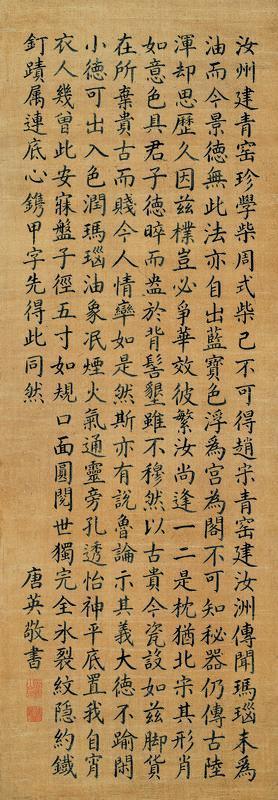 汝州建青窑珍學柴周式柴已不可得趙宋青窑建汝洲傳聞瑪瑙末為
油而今景德無此法亦自出藍寶色浮為宮為閣不可知秘器仍傳古陸
渾却思歷久因兹樸豈必爭華效彼繁汝尚逢一二是枕猶北宋其形肖
如意色具君子德晬而盎於背髻墾雖不穆然以古貴今瓷設如兹脚貨
在所棄貴古而賤今人情率如是然斯亦有說魯論示其義大德不踰閑
小德可出入色潤瑪瑙油象泯煙火氣通靈旁孔透怡神平底置我自宵
衣人幾曾此安寐盤子徑五寸如規口面圓閱世獨完全氷裂紋隱約鐵
釘蹟属連底心鎸甲字先得此同然
唐英敬書